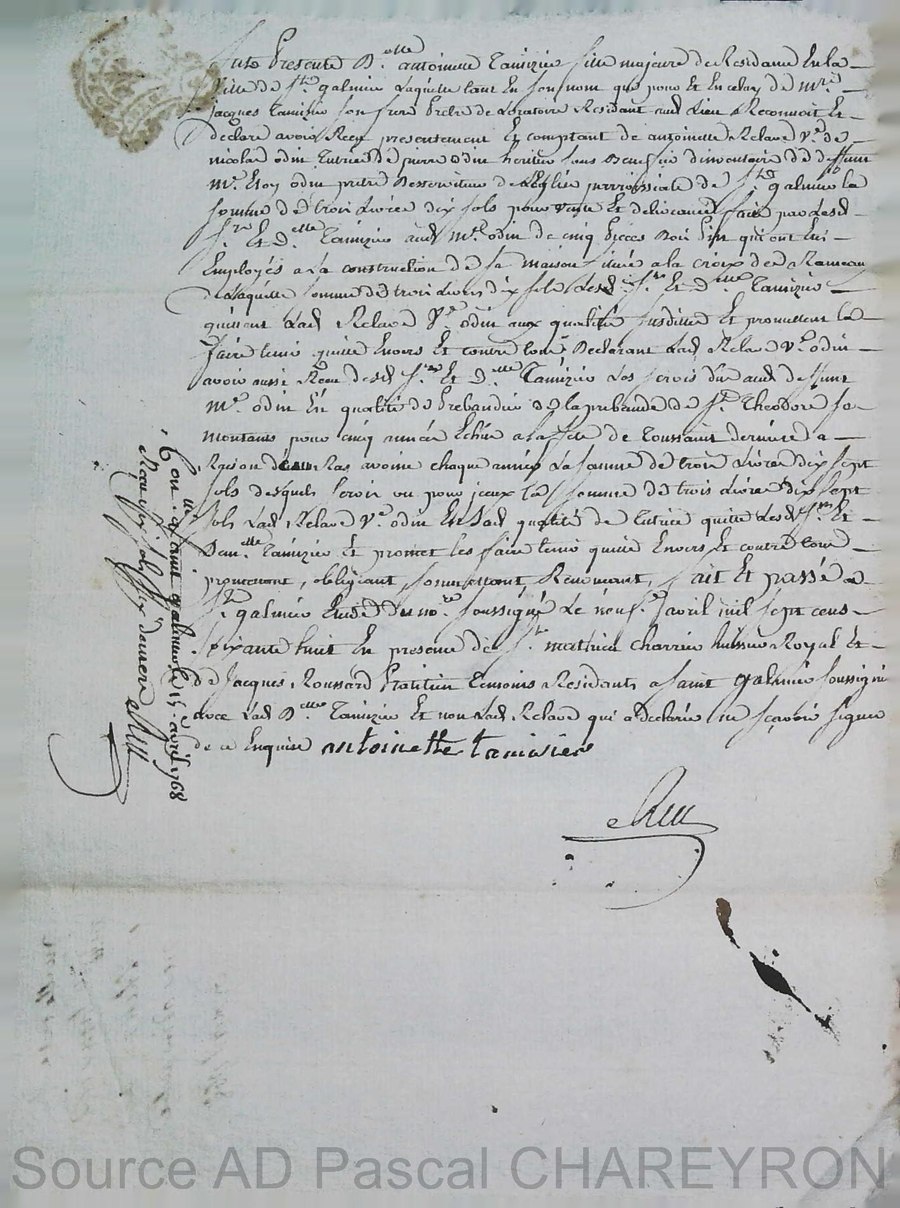 fut Presente D.elle antoinette Tamizier fille majeure de Residance En la
Ville de St galmier Laquelle tant En son nom que pour Et En celuy de mre
jacques Tamizier son frere Prêtre de Loratoire Residant aud Lieu a Reconnu Et
declaré avoir Reçu presentement Et comptant de antoinette Relave Ve de
nicolas odin tutrice de pierre odin heritier sous Benefice dinventaire de deffunt
mre odin pretre Desserviteur de LEglise parroissiale de St galmier la
somme de trois Livres dix sols pour vente Et delivrance faite par Lesd
Sr Et Delle Tamizier aud mre odin de cinq pieces Bois pin qui ont Eté
Employés a La construction de sa maison située a la croix des Rameaux
de Laquelle somme de trois Livres dix sols Lesd. Sr Et Delle Tamizier
quittent Lad Relave Ve odin aux qualités susdittes Et promettent la
faire tenir quitte Envers Et contre tous Declarant Lad Relave Ve odin
avoir aussi Reçu desd Sr Et Delle Tamizier Les servis dus aud deffunt
Mre odin En qualité de Prebandier de la prebande de St Theodore se
montants pour cinq années Echües a La fete de Toussaint derniere a
Raison Ras avoine chaque année La somme de trois Livres dix sept
sols desquels servis ou pour iceux La somme de trois Livres dix sept
sols Lad Relave Ve odin En sad qualité de Tutrice quitte Lesd Sr Et
Demelle Tamizier Et promet les faire tenir quitte Envers Et contre tous
promettant, obligeant, soumettant, Renonçant, fait Et passé a
St galmier Etude du nore soussigné Le neuf avril mil sept cens
soixante huit En presence de Sr mathieu Charrier huissier Royal Et
de Jacques Roussard Praticien temoins Residants a saint galmier soussignés
avec Lad Delle Tamizier Et non Lad Relave qui a Declaré ne sçavoir signer
de ce Enquise antoinette tamisier
Con.lé a saint galmier le 15 avril 1768
Reçu six sols six deniers
Source AD Pascal CHAREYRON